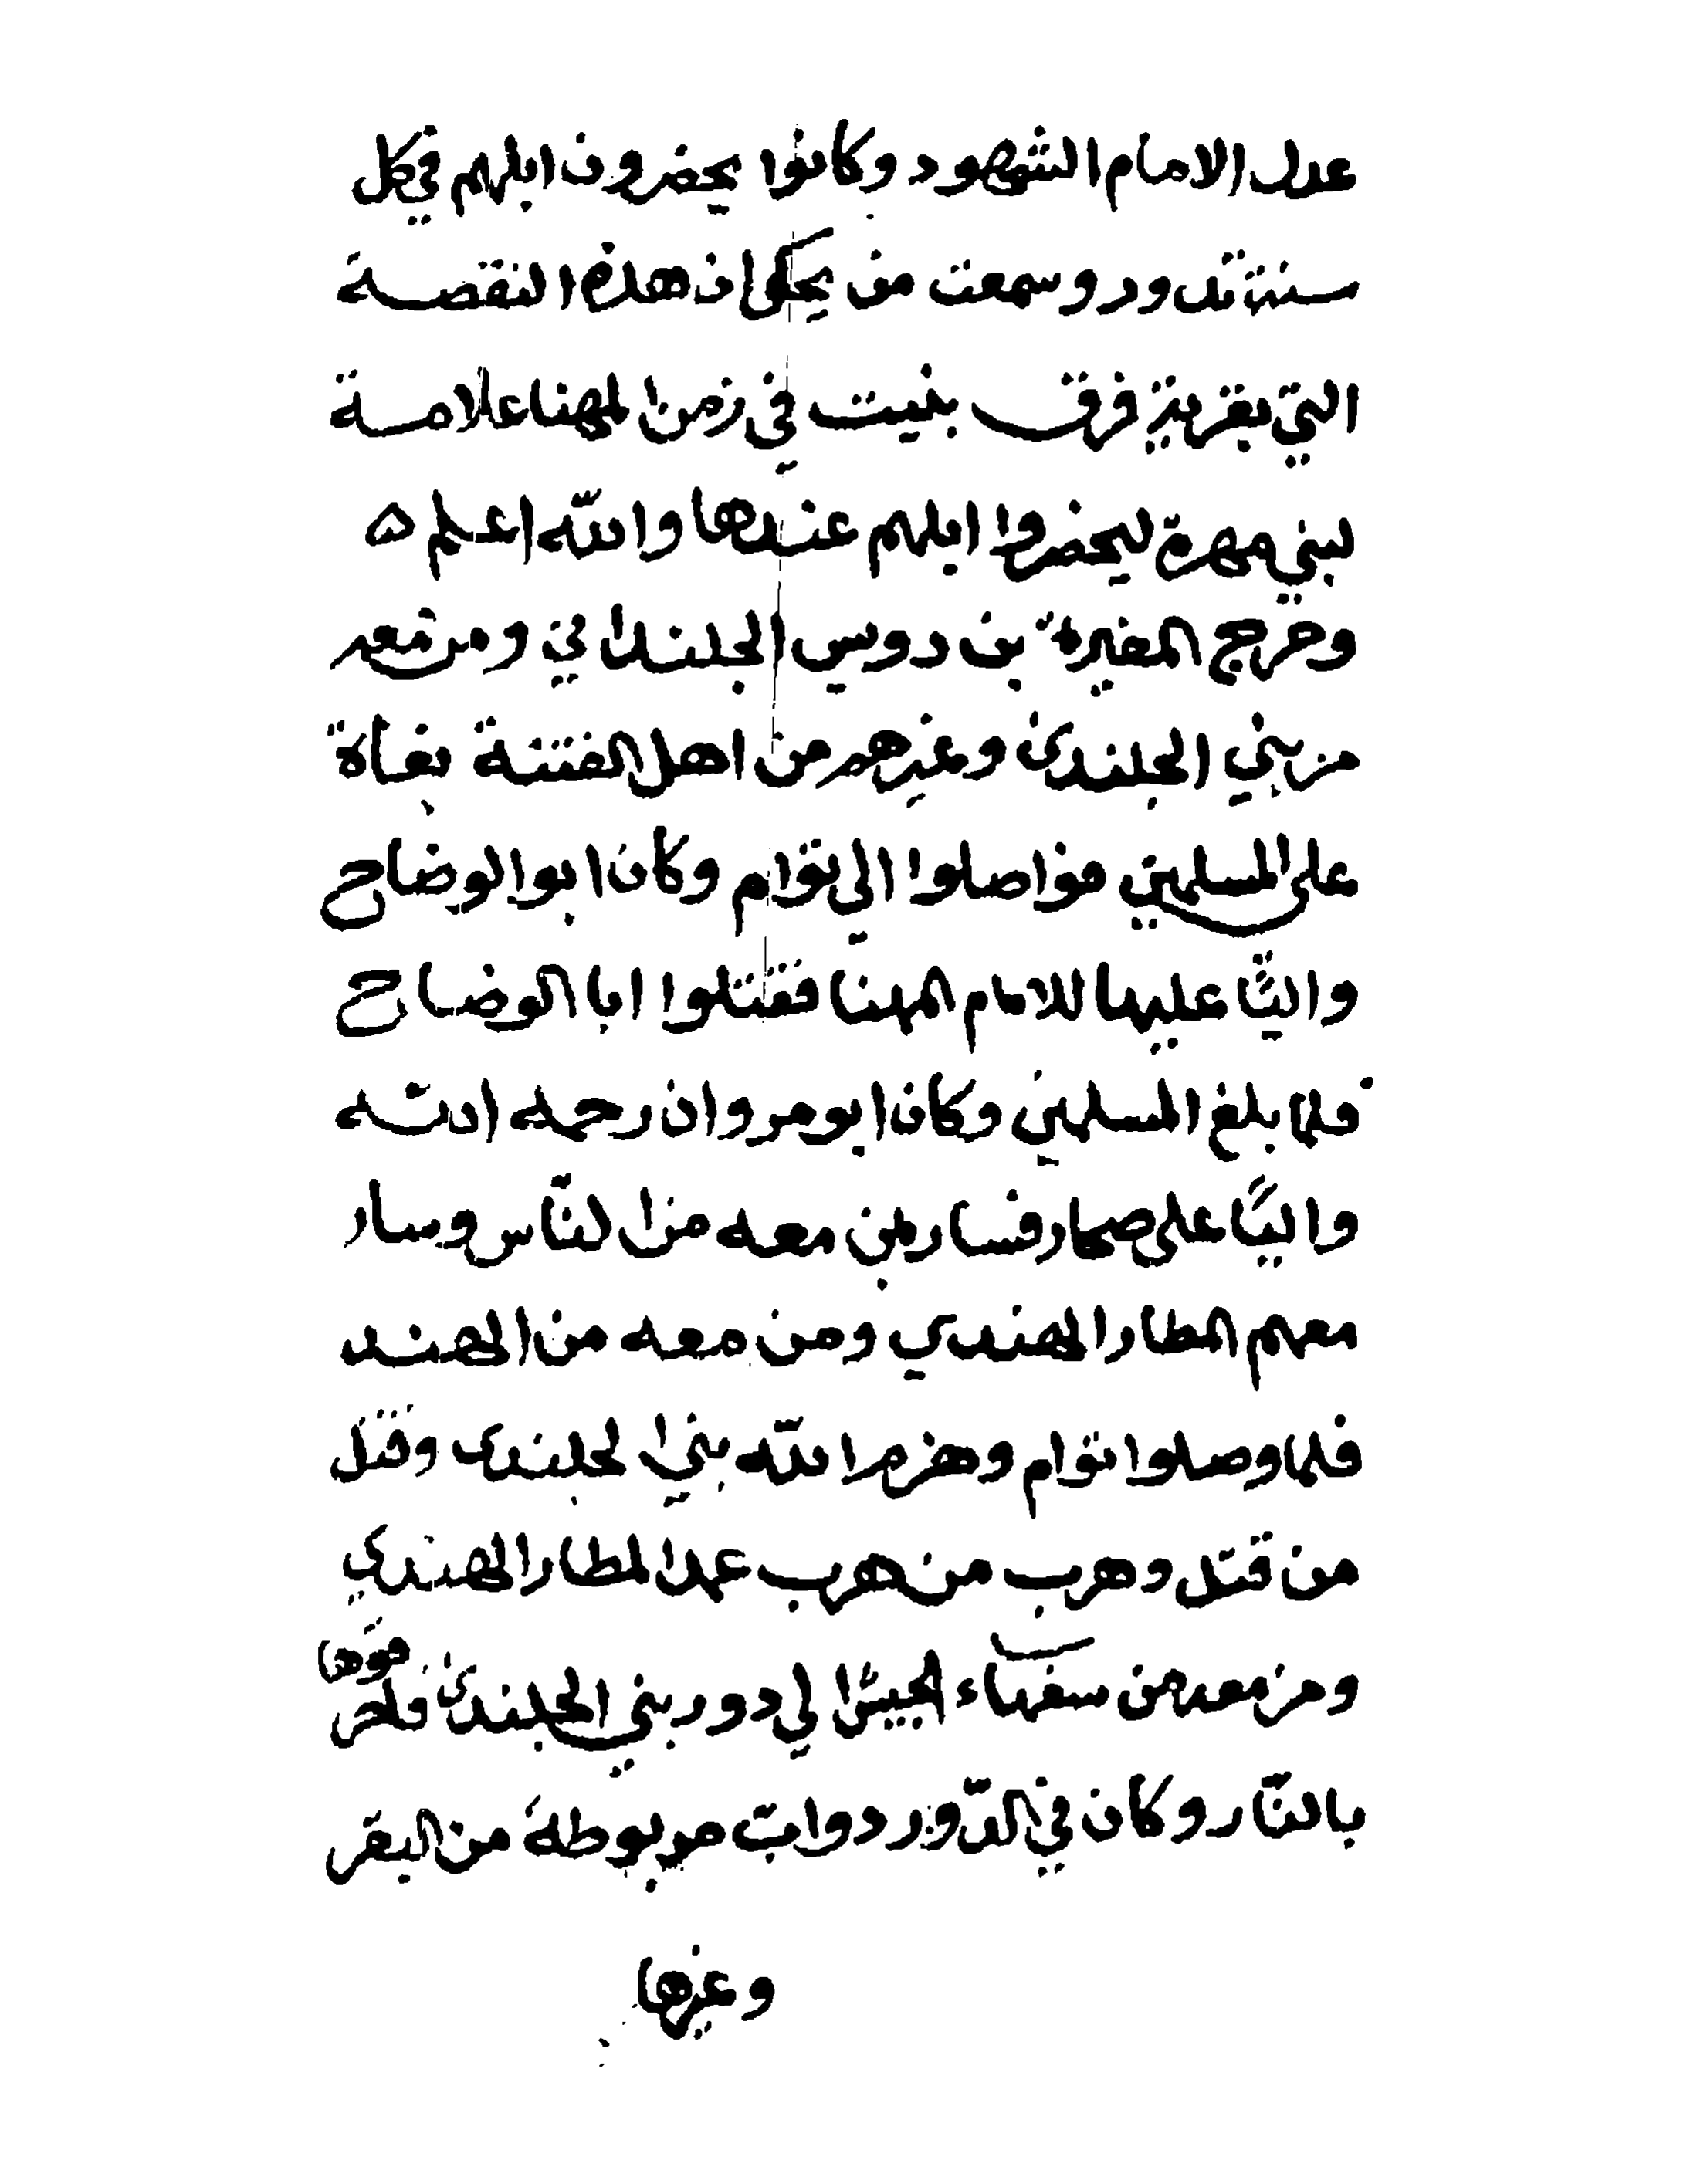 عدل الامام الشهود وكانوا يحضرون ابلهم في كل
سنة تدور وسمعت من يحكي ان هذه النقصة
التي بقرية فرق بنيت في زمن المهنا علامة
لبني مهرة ليحضروا ابلهم عندها والله اعلم ه
وخرج المغيرة بن دوس الجلنداني ومن معه
من بني الجلندى وغيرهم من اهل الفتنة بغاة
على المسلمين فواصلوا الى توام وكان ابو الوضاح
واليًا عليها للامام المهنا فقتلوا ابا الوضاح
فلما بلغ المسلمين وكان ابو مروان رحمه الله
واليًا على صحار فسار بمن معه من الناس وسار
معهم المطار الهندي ومن معه من الهند
فلما وصلوا توام وهزم الله بني الجلندى وقتل
من قتل وهرب من هرب عمد المطار الهندي
ومن معه من سفهاء الجيش الي دور بني الجلندى فاحرقوها
بالنّار وكان في الدّور دواب مربوطة من البقر
وغيرها